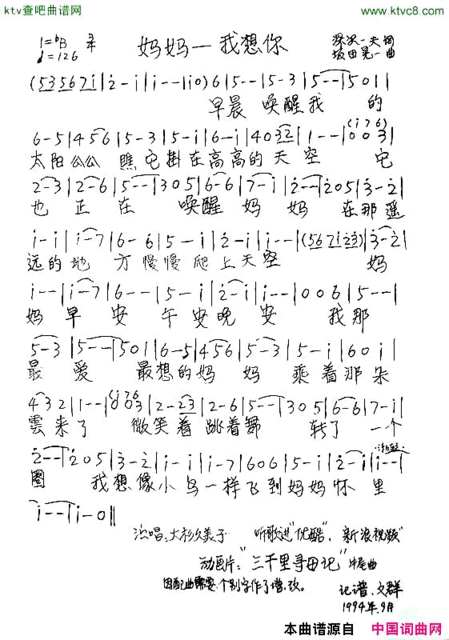 ktv查吧曲谱网
www.ktvc8.com
1=♭B 3/4
♩=126
妈妈—我想你
深沢一夫 词
坂田晃一 曲
(535671̇|2̇-1̇|1̇--|1̇0)6|5--|5-3|5--|501|
早晨 唤醒我 的
6-5|456|5-3|5-1̇|6-1̇|4032|1--|003|
(1̇76)
太阳公公 瞧它掛在高高的天空 它
2-3|2-6|5--|305|6-6|7-1̇|2̇--|2̇05|3̇-2̇|
也正在 唤醒妈妈 在那遥
1̇-1̇|1̇-7|6-6|5-1̇|2̇-1̇|1̇--|(5671̇2̇3̇)|3̇-2̇|
远的地方慢慢爬上天空 妈
1̇--|1̇-7|6--|5-1̇|2̇-1̇|1̇--|006|5--|
妈早安午安晚安 我那
5-3|5--|501|6-5|456|5-3|5-1̇|601̇|
最爱 最想的妈妈 乘着那朵
432|1--|003|2-23|2-6|5--|305|6-6|7-1̇|
(1̇76)
雲来了 微笑着跳着舞 转了一个
2̇--|2̇05|3̇-2̇|1̇-1̇|1̇-7|606|5-1̇|2̇-1̇|1̇--|
圈 我想像小鸟一样飞到妈妈怀里
1̇--|1̇-0‖
演唱:大杉久美子 听歌进"优酷",新浪视频"
动画片:"三千里寻母记"片尾曲
因配曲需要,个别字作了增、改。
记谱、文群
1994年.9月
本曲谱源自 中国词曲网